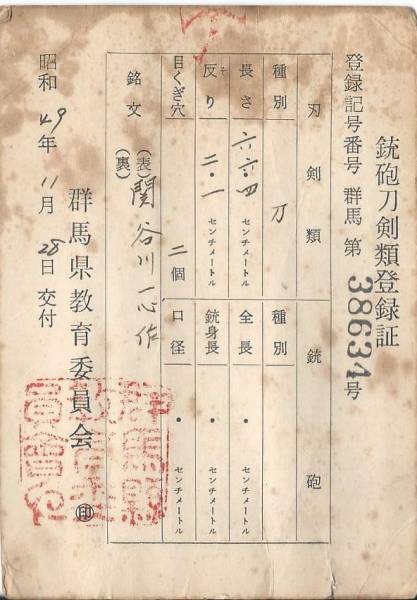 銃砲刀剣類登録証
登録記号番号 群馬 第 38634号
刃剣類
銃砲
種別 刀
種別
長さ 六六・四 センチメートル
全長 ・ センチメートル
反り そ 二・一 センチメートル
銃身長 ・ センチメートル
目くぎ穴 二個
口径 ・ センチメートル
銘文 (表) 関谷川一心作
(裏)
昭和49年11月28日 交付
群馬県教育委員会 ㊞